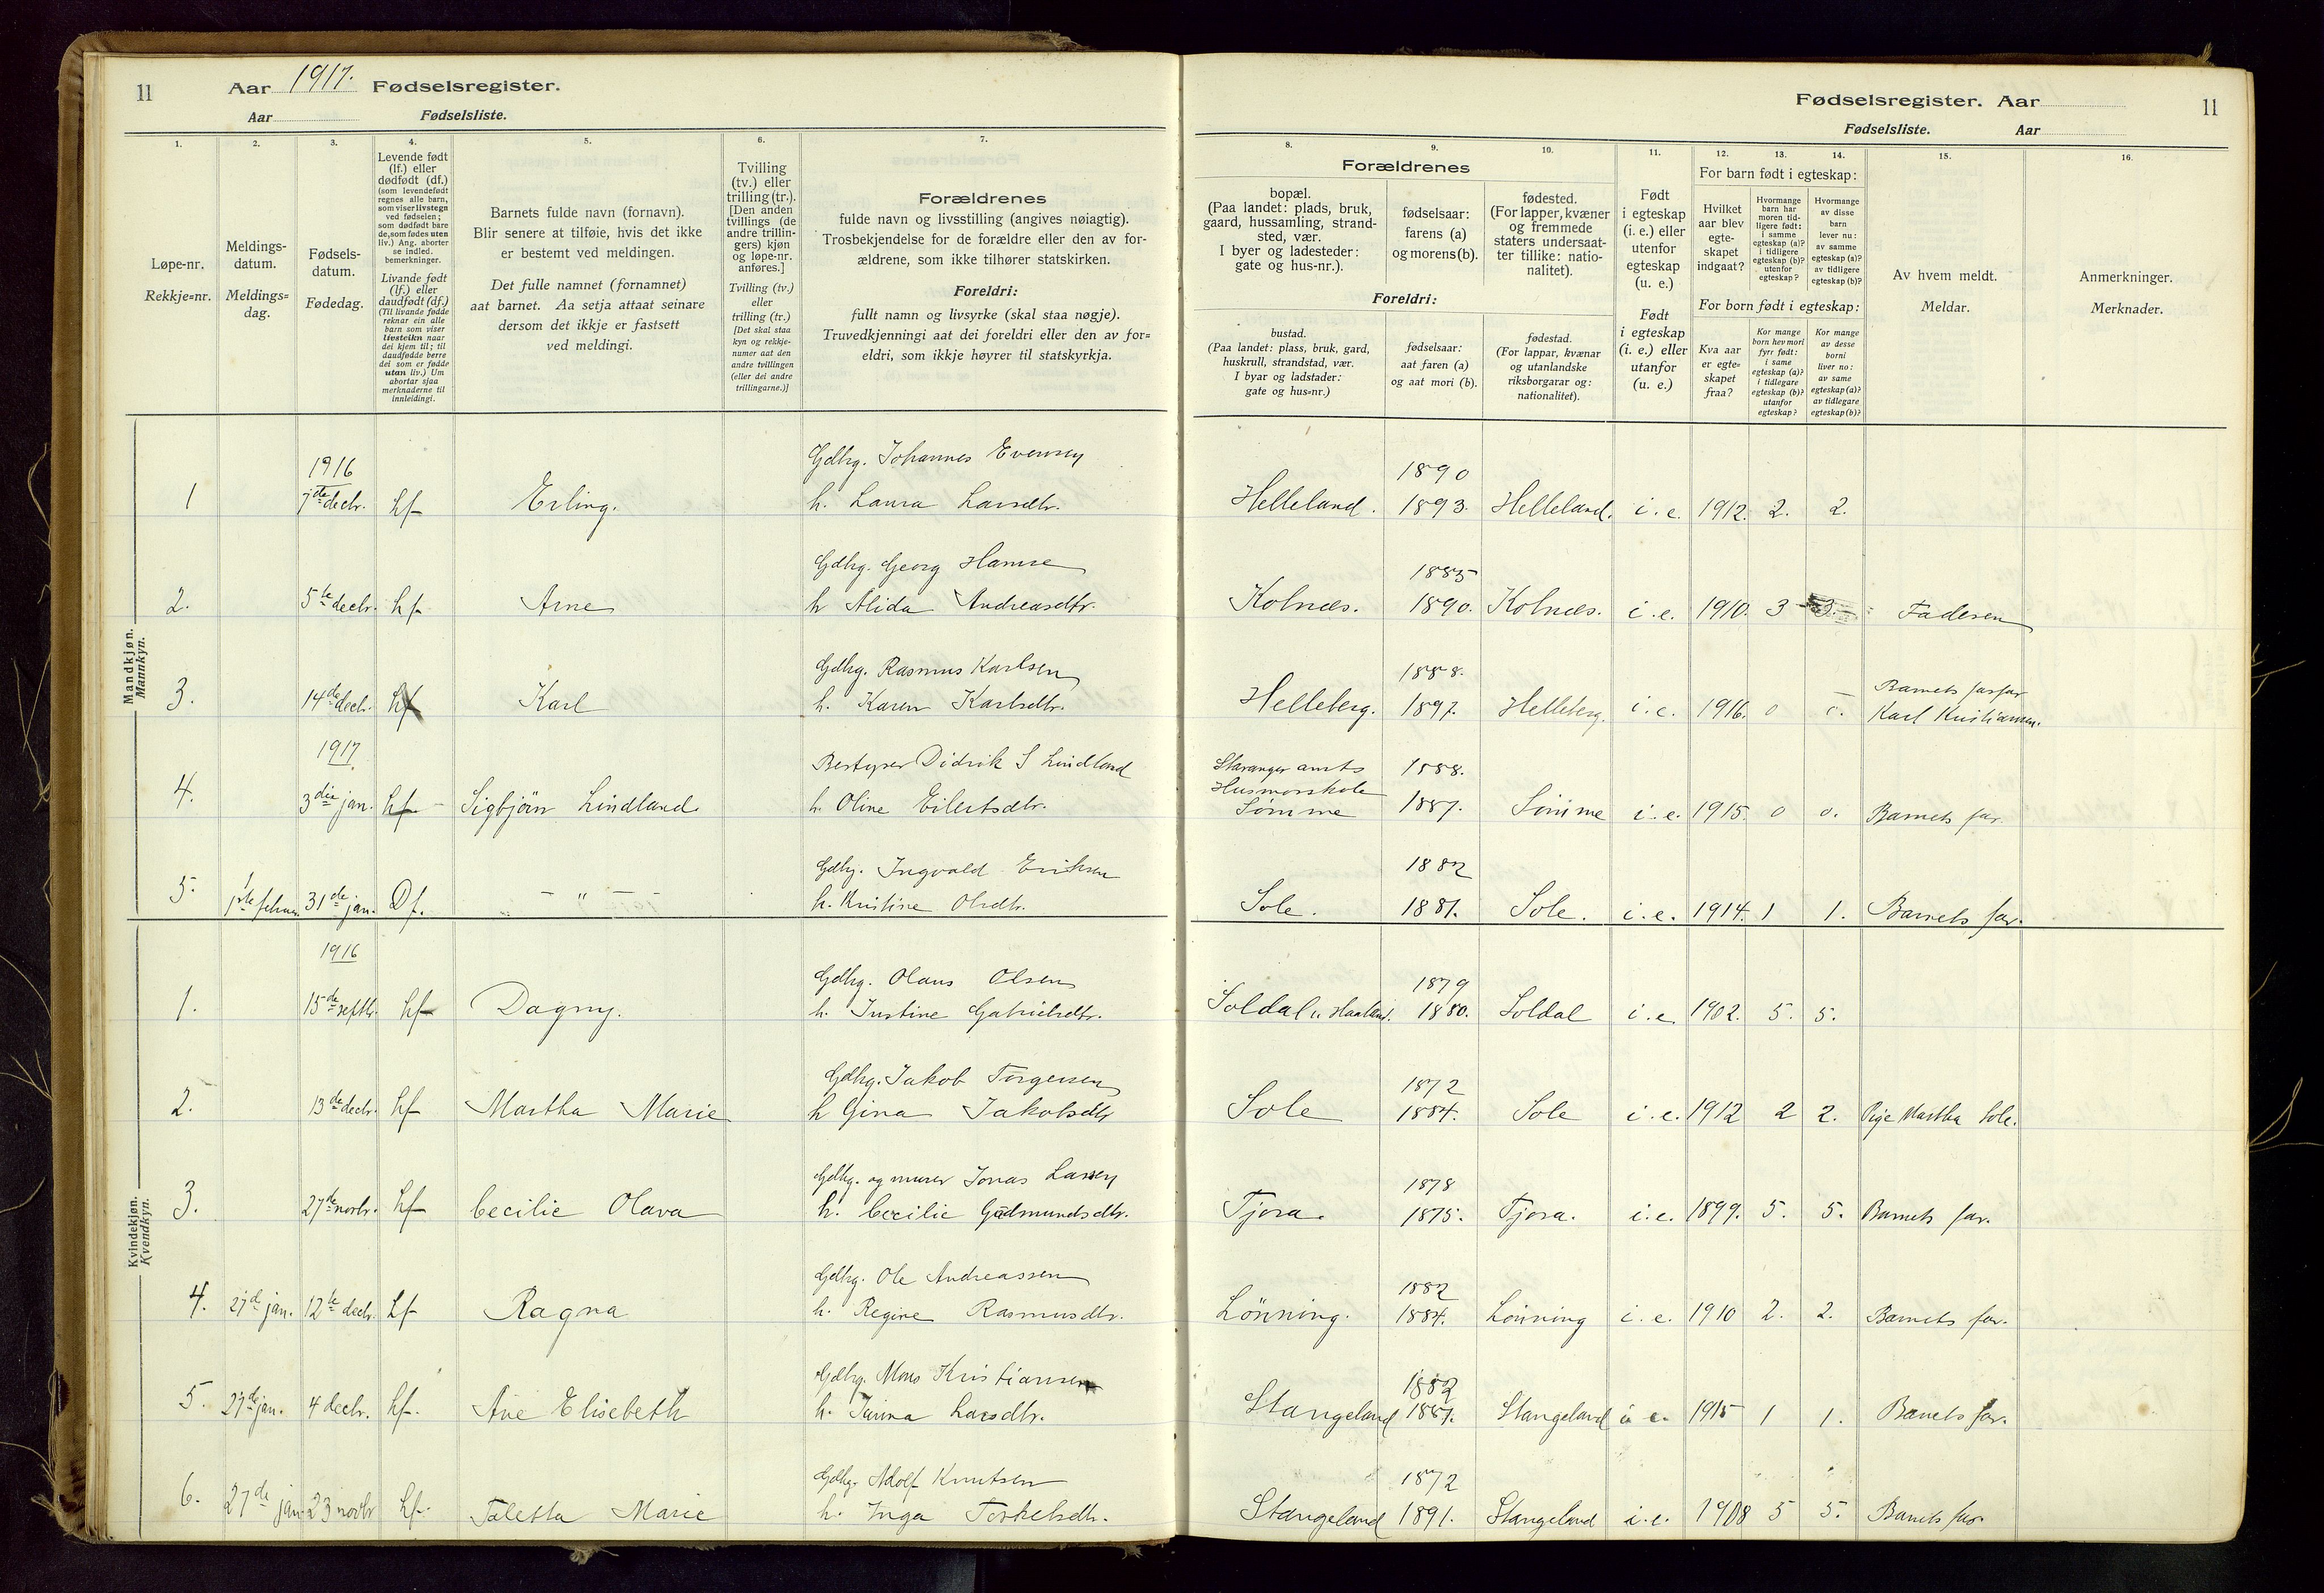 11
Aar 1917. Fødselsregister.
Aar Fødselsliste.
1.
2.
3.
4.
5.
6.
7.
Løpe-nr.
Rekkje=nr.
Meldings-
datum.
Meldings=
dag.
Fødsels-
datum.
Fødedag.
Levende født
(lf.) eller
dødfødt (df.)
(som levendefødt
regnes alle barn,
som viser livstegn
ved fødselen;
som dødfødt bare
de, som fødes uten
liv.) Ang. aborter
se indled.
bemerkninger.
Livande født
(lf.) eller
daudfødt (df.)
(Til livande fødde
reknar ein alle
barn som viser
livsteikn naar
dei kjem til; til
daudfødde berre
dei som er fødde
utan liv.) Um
abortar sjaa
merknaderne til
innleidingi.
Barnets fulde navn (fornavn).
Blir senere at tilføie, hvis det ikke
er bestemt ved meldingen.
Det fulle namnet (fornamnet)
aat barnet. Aa setja attaat seinare
dersom det ikkje er fastsett
ved meldingi.
Tvilling
(tv.) eller
trilling (tr.).
[Den anden
tvillings (de
andre trillin-
gers) kjøn
og løpe-nr.
anføres.]
Tvilling (tv.)
eller
trilling (tr.)
[Det skal staa
kyn og rekkje-
numer aat den
andre tvillingen
(eller dei andre
trillingarne.)]
Forældrenes
fulde navn og livsstilling (angives nøiagtig).
Trosbekjendelse for de forældre eller den av for-
ældrene, som ikke tilhører statskirken.
Foreldri:
fullt namn og livsyrke (skal staa nøgje).
Truvedkjenningi aat dei foreldri eller den av for=
eldri, som ikkje høyrer til statskyrkja.
Mandkjøn.
Mannkyn.
1916
Gdbrg. Johannes Evensen
1 7de decbr. Lf Erling. h. Laura Larsdtr.
Gdbrg. Georg Hamre
2. 5te decbr. Lf Arne h Alida Andreasdtr.
Gdbrg. Rasmus Karlsen
3. 14de decbr. Lf Karl h. Karen Karlsdtr.
1917
Bestyrer Didrik S Lindland
4. 3die jan. Lf Sigbjörn Lindland h. Oline Eilertsdtr.
Gdbrg. Ingvald Eriksen
5. 1ste februar. 31de jan. Df. — " — h. Kristine Olsdtr.
Kvindekjøn.
Kvendkyn.
1916
Gdbrg. Olaus Olsen
1. 15de septbr. Lf Dagny. h. Justine Gabrielsdtr.
Gdbrg. Jakob Torgersen
2. 13de decbr. Lf Martha Marie h Gina Jakobsdtr
Gdbrg. og murer Jonas Larsen
3. 27de novbr. Lf Cecilie Olava h. Cecilie Gudmundsdtr.
Gdbrg. Ole Andreassen
4. 27d jan. 12te decbr. Lf Ragna h. Regine Rasmusdtr.
Gdbrg. Mons Kristiansen
5. 27de jan. 4 decbr. Lf. Ane Elisebeth h. Larsdtr.
Gdbrg. Adolf Knutsen
6. 27de jan 23 novbr Lf. Taletta Marie h. Inga Torkelsdtr.
Fødselsregister. Aar
11
Fødselsliste. Aar
8.
9.
10.
11.
12.
13.
14.
15.
16.
Forældrenes
bopæl.
(Paa landet: plads, bruk,
gaard, hussamling, strand-
sted, vær.
I byer og ladesteder:
gate og hus-nr.).
fødselsaar:
farens (a)
og morens (b).
fødested.
(For lapper, kvæner
og fremmede
staters undersaat-
ter tillike: natio-
nalitet).
Foreldri:
bustad.
(Paa landet: plass, bruk, gard,
huskrull, strandstad, vær.
I byar og ladstader:
gate og hus=nr.)
fødselsaar:
aat faren (a)
og aat mori (b).
fødestad.
(For lappar, kvænar
og utanlandske
riksborgarar og:
nationalitet).
Født
i egteskap
(i. e.) eller
utenfor
egteskap
(u. e.)
Født
i egteskap
(i. e.) eller
utanfor
(u. e.)
For barn født i egteskap:
Hvilket
aar blev
egte-
skapet
indgaat?
Hvormange
barn har
moren tid-
ligere født:
i samme
egteskap (a)?
i tidligere
egteskap (b)?
utenfor
egteskap?
Hvormange
av disse
barn
lever nu:
av samme
egteskap (a)?
av tidligere
egteskap (b)?
For born født i egteskap:
Kva aar
er egte=
skapet
fraa?
Kor mange
born hev mori
fyrr født:
i same
egteskap (a)?
i tidlegare
egteskap (b)?
utanfor
egteskap?
Kor mange
av desse
borni
liver no:
av same
egteskap (a)?
av tidlegare
egteskap (b)?
Av hvem meldt.
Meldar.
Anmerkninger.
Merknader.
1890
Helleland. 1893. Helleland. i. e. 1912. 2. 2.
1885
Kolnæs. 1890. Kolnæs. i. e. 1910. 3 3. Faderen
1888.
Barnets farfar
Helleberg. 1897. Helleberg. i. e. 1916. 0 0. Karl Kristiansen.
Stavanger amts 1888.
Husmorskole
Sömme 1887. Sömme i. e. 1915. 0 0. Barnets far
1882
Sole. 1881. Sole. i. e. 1914. 1 1. Barnets far.
1879
Soldal u. Haaland. 1880. Soldal i. e. 1902. 5. 5.
1872
Sole 1884. Sole i. e. 1912 2 2. Pige Martha Sole.
1878
Tjora. 1875. Tjora. i. e. 1899. 5. 5. Barnets far.
1882
Lönning. 1884. Lönning i. e. 1910 2. 2. Barnets far.
1882
Stangeland 1887. Stangeland i e. 1915 1 1. Barnets far.
1872
Stangeland 1891. Stangeland i. e. 1908 5 5. Barnets far.